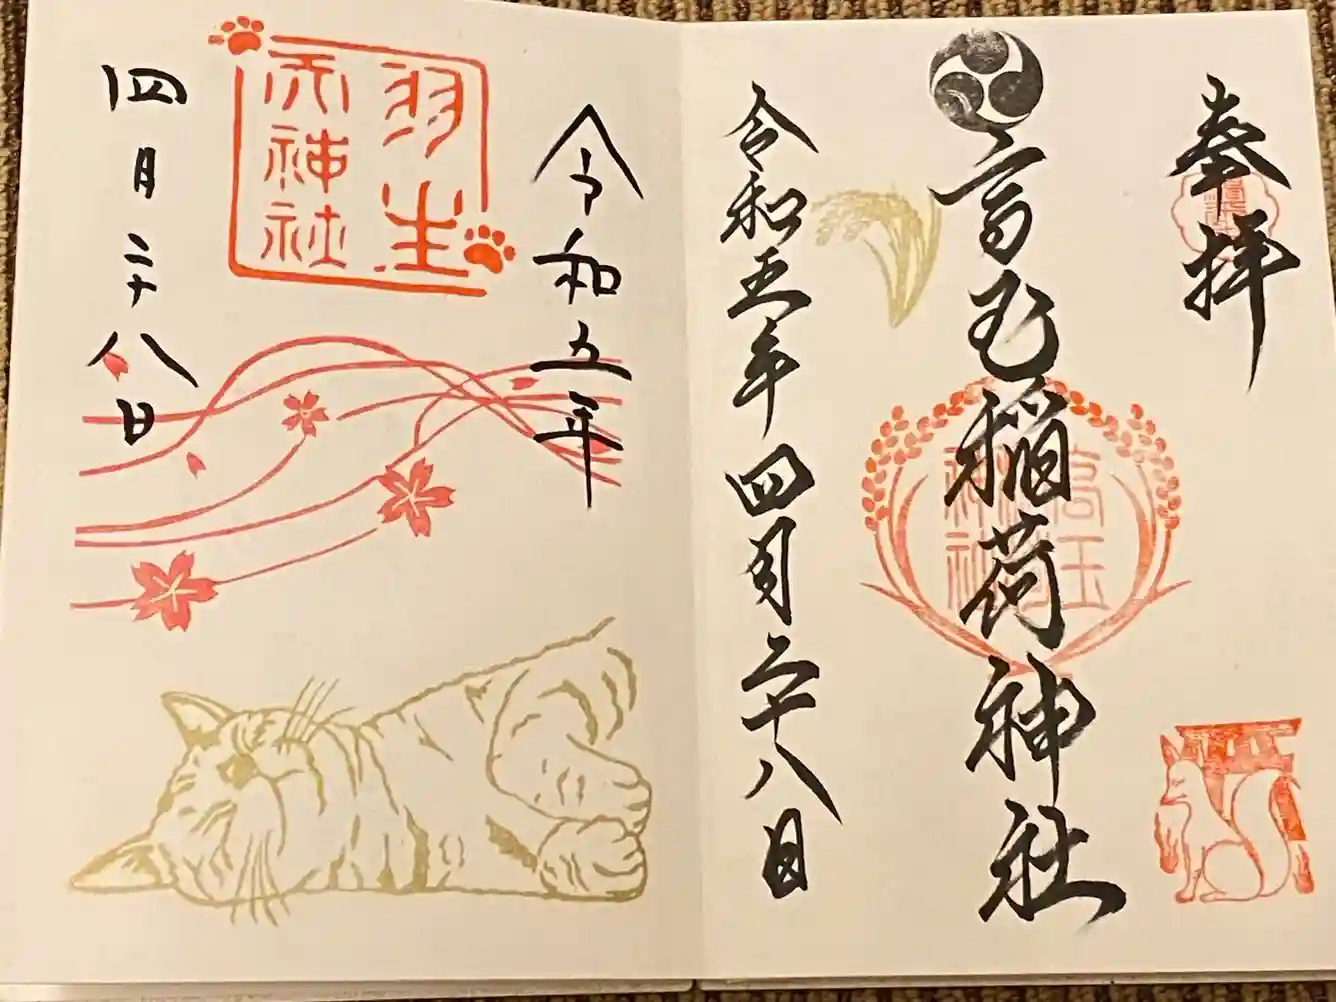 奉拝
高玉稲荷神社
高玉
神社
令和五年四月二十八日
令和五年
羽生
天神社
四月二十八日